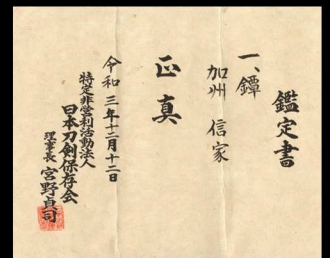 鑑定書
一、鐔
加州 信家
正真
令和三年十二月十二日
特定非営利活動法人
日本刀剣保存会
理事長 宮野貞司